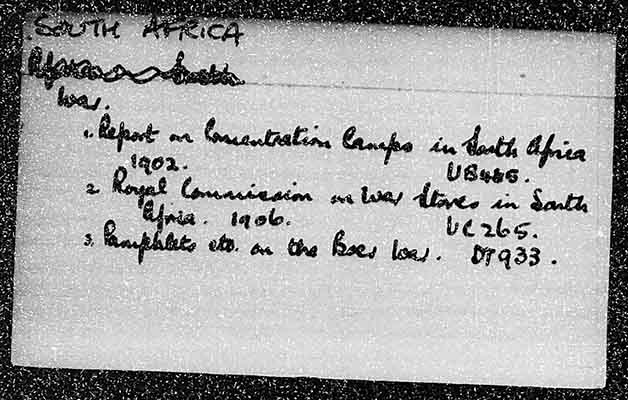 SOUTH AFRICA
Africa South
War.
1. Report on Concentration Camps in South Africa
1902. UB
2. Royal Commission on War Stores in South
Africa. 1906. UC265.
3. Pamphlets etc. on the Boer War. DT933.